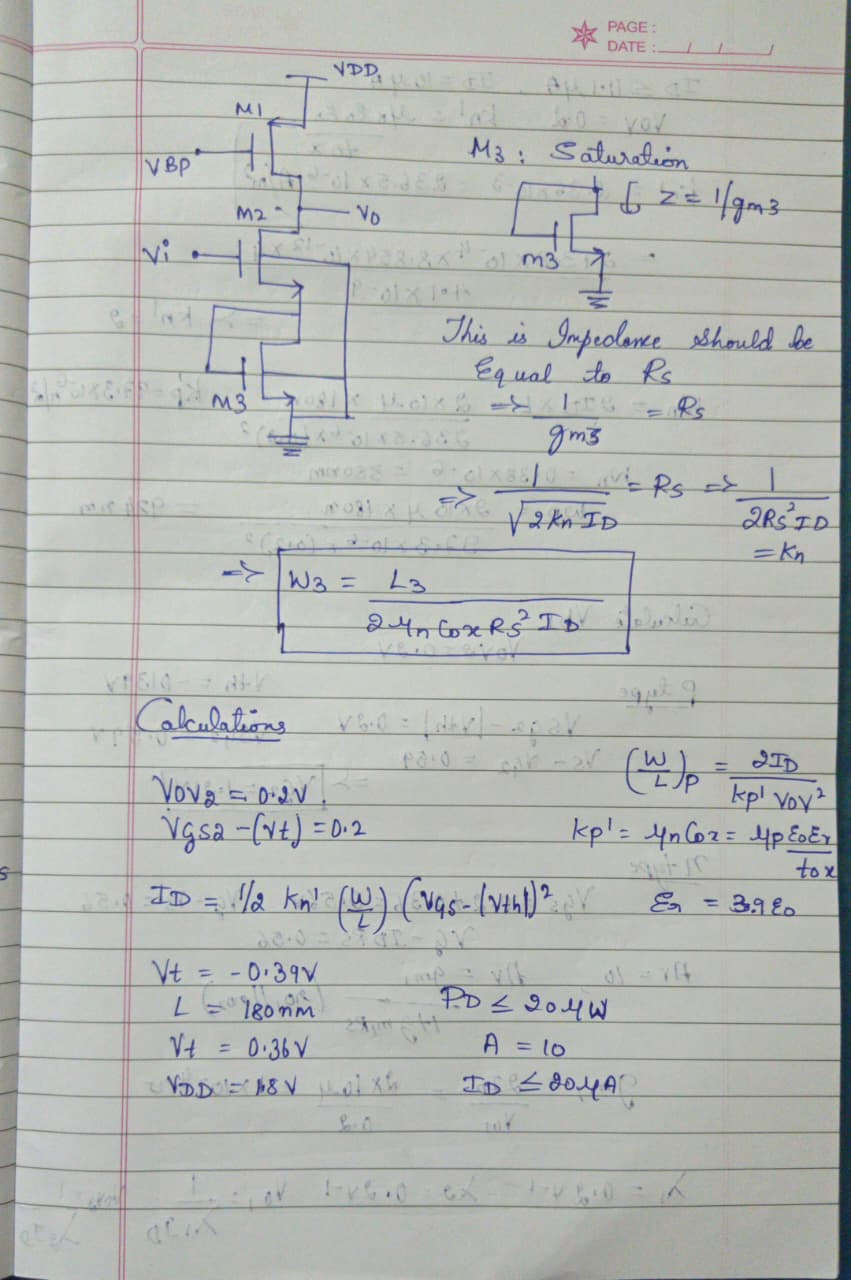 PAGE :
DATE : / /
VDD
M1
VBP
M2
Vo
Vi
M3
M3 : Saturation
Z = 1/gm3
m3
This is Impedance should be
Equal to Rs
=> 1/gm3 = Rs
=> 1/√2 Kn ID = Rs => 1/2Rs² ID
= Kn
=> W3 = L3/2μn Cox Rs² ID
Calculations
VOV2 = 0.2V
VGS2 - (Vt) = 0.2
(W/L)p = 2ID/kp' VOV²
kp' = μn Cox = μp ε0εr/tox
ID = 1/2 Kn' (W/L) (VGS - |Vth|)²
εr = 3.9 ε0
Vt = -0.39V
L = 180nm
PD ≤ 20μW
Vt = 0.36V
A = 10
VDD = 1.8V
ID ≤ 20μA